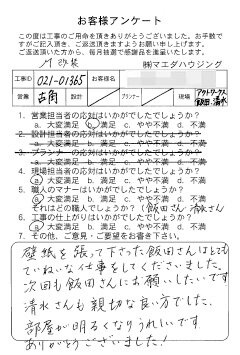 お客様アンケート
この度は工事のご用命を頂きありがとうございました。お手数で
すがご記入頂き、ご返送頂きますようお願い申し上げます。
ご返送頂いた方から、毎月抽選で感謝品を進呈いたします。
(株)マエダハウジング
工事ID 021-01365 お客様名
営業 古角 設計 プランナー 現場 アクトワークス 飯田、清水
1. 営業担当者の応対はいかがでしたでしょうか?
a. 大変満足 b. 満足 c. やや不満 d. 不満
2. 設計担当者の応対はいかがでしたでしょうか?
a. 大変満足 b. 満足 c. やや不満 d. 不満
3. プランナーの応対はいかがでしたでしょうか?
a. 大変満足 b. 満足 c. やや不満 d. 不満
4. 現場担当者の応対はいかがでしたでしょうか?
a. 大変満足 b. 満足 c. やや不満 d. 不満
5. 職人のマナーはいかがでしたでしょうか?
a. 大変満足 b. 満足 c. やや不満 d. 不満
それはどの職人でしょうか?(飯田さん 清水さん)
6. 工事の仕上がりはいかがでしたでしょうか?
a. 大変満足 b. 満足 c. やや不満 d. 不満
7. その他、ご意見・ご要望をお書き下さい。
壁紙を張って下さった飯田さんはとても
ていねいな仕事をしてくださいました。
次回も飯田さんにお願いしたいです
清水さんも親切な良い方でした。
部屋が明るくなりうれしいです
ありがとうございました!